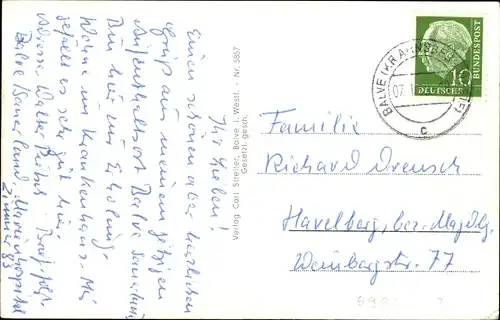 Ihr Lieben!
Einen schönen aber herzlichen
Gruß aus meinem jetzigen
Aufenthaltsort Balve Sauerland
Bin hier zur Erholung.
Wohne im Krankenhaus.
gefällt es sehr gut hier.
Adresse. Walter
Balve Sauerland, Marienhospital
Zimmer 83
Verlag Carl Streiter, Balve i. Westf. · Nr. 5857
Gesetzl. gesch.
DEUTSCHE BUNDESPOST
10
BALVE (KR ARNSBERG
07.
c
Familie
Richard
Havelberg, bez. Magdbg.
Weinbergstr. 77